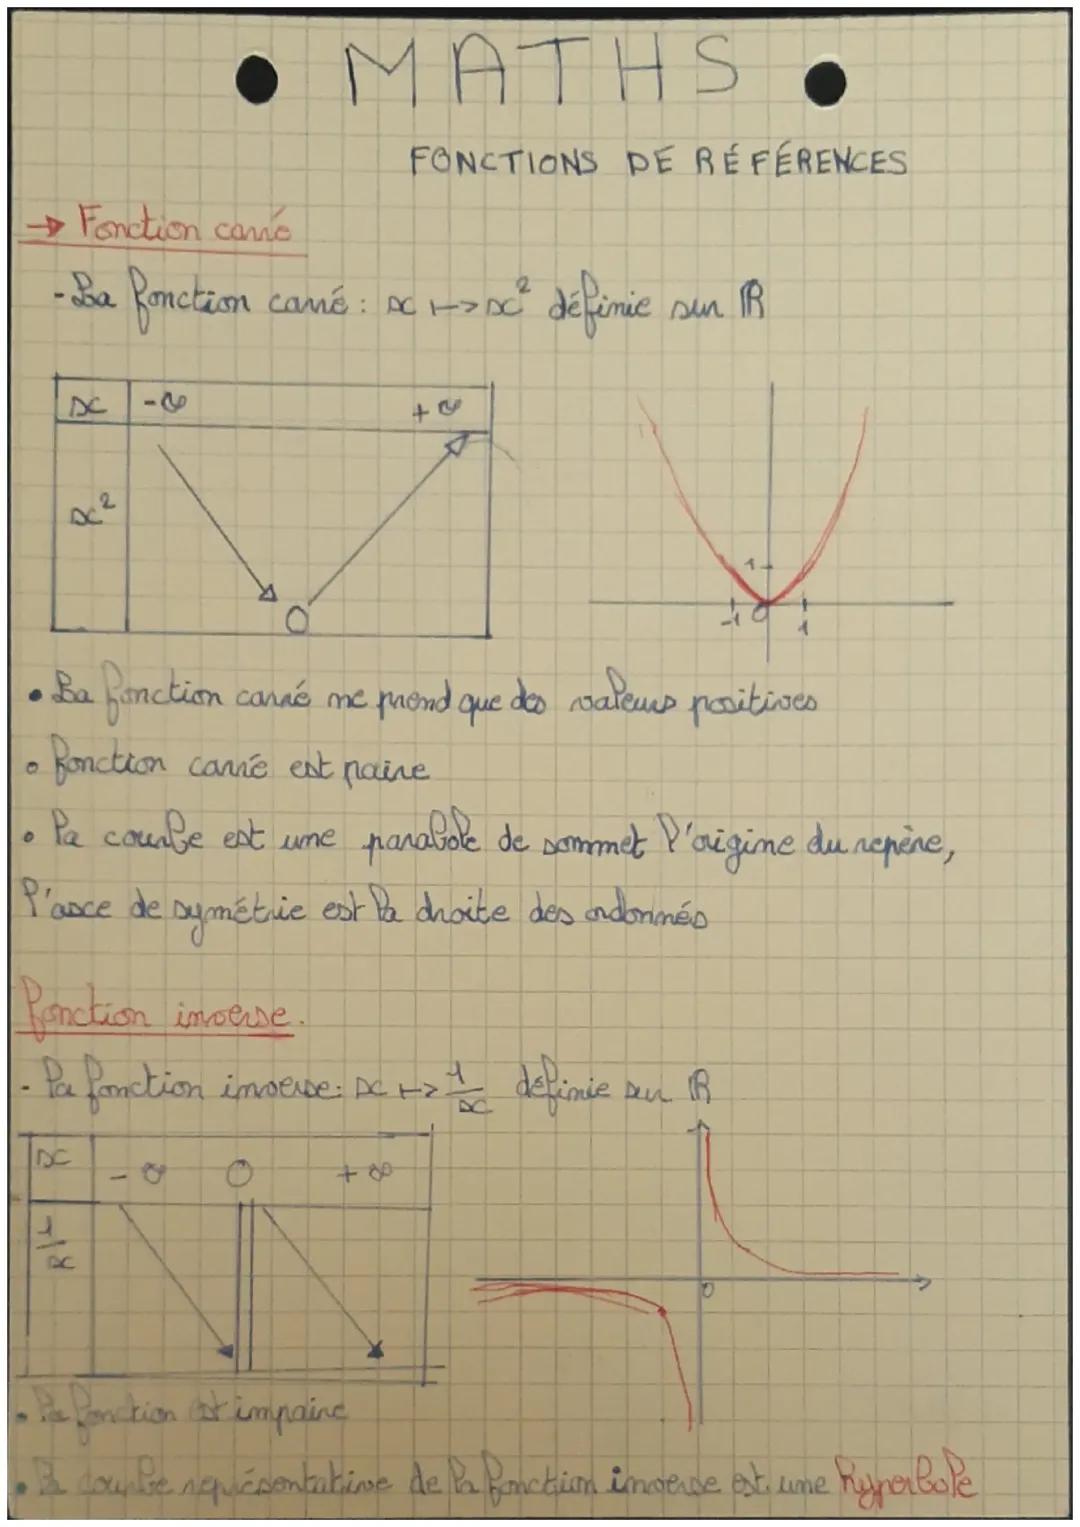 MATHS
FONCTIONS DE RÉFÉRENCES
→ Fonction carré
- La fonction carré : x ↦ x² définie sur ℝ
x -∞ +∞
x²
0
1
-1 0 1
• La fonction carré ne prend que des valeurs positives
• fonction carré est paire
• la courbe est une parabole de sommet l'origine du repère,
l'axe de symétrie est la droite des ordonnés
fonction inverse.
- la fonction inverse : x ↦ 1/x définie sur ℝ
x -∞ 0 +∞
1/x
0
• la fonction est impaire
• la courbe représentative de la fonction inverse est une hyperbole